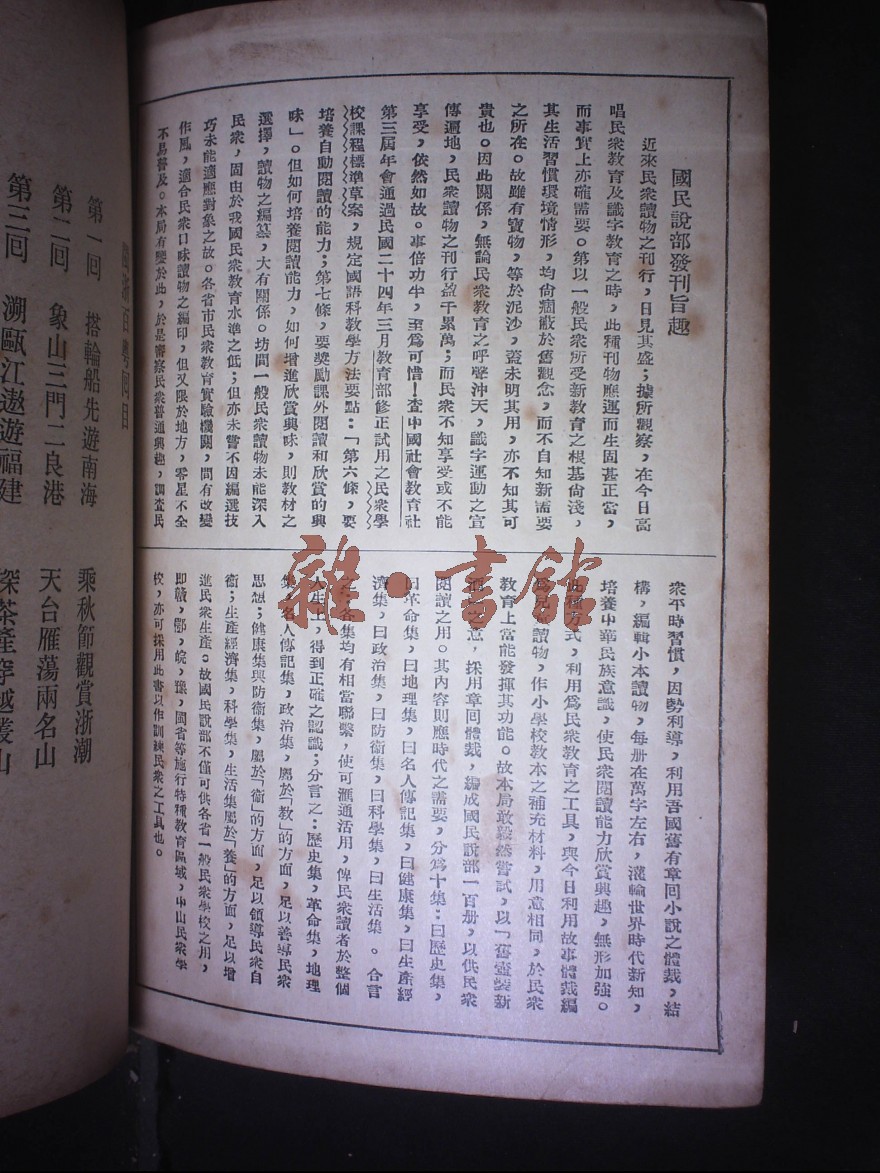 國民說部發刊旨趣
近來民衆讀物之刊行，日見其盛；據所觀察，在今日高
唱民衆教育及識字教育之時，此種刊物應運而生固甚正當，
而事實上亦確需要。第以一般民衆所受新教育之根基尚淺，
其生活習慣環境情形，均尚痼蔽於舊觀念，而不自知新需要
之所在。故雖有寶物，等於泥沙，蓋未明其用，亦不知其可
貴也。因此關係，無論民衆教育之呼聲沖天，識字運動之宣
傳遍地，民衆讀物之刊行盈千累萬；而民衆不知享受或不能
享受，依然如故。事倍功半，至爲可惜！查中國社會教育社
第三屆年會通過民國二十四年三月教育部修正試用之民衆學
校課程標準草案，規定國語科教學方法要點：「第六條，要
培養自動閱讀的能力；第七條，要獎勵課外閱讀和欣賞的興
味」。但如何培養閱讀能力，如何增進欣賞興味，則教材之
選擇，讀物之編纂，大有關係。坊間一般民衆讀物未能深入
民衆，固由於我國民衆教育水準之低；但亦未嘗不因編選技
巧未能適應對象之故。各省市民衆教育實驗機關，間有改變
作風，適合民衆口味讀物之編印，但又限於地方，零星不全
不易普及。本局有鑒於此，於是審察民衆普通興趣，調查民
衆平時習慣，因勢利導，利用吾國舊有章回小說之體裁，結
構，編輯小本讀物，每册在萬字左右，灌輸世界時代新知，
培養中華民族意識，使民衆閱讀能力欣賞興趣，無形加強。
此種方式，利用爲民衆教育之工具，與今日利用故事體裁編
爲兒童讀物，作小學校教本之補充材料，用意相同，於民衆
教育上當能發揮其功能。故本局敢毅然嘗試，以「舊壺裝新
酒」之意，採用章回體裁，編成國民說部一百册，以供民衆
閱讀之用。其內容則應時代之需要，分爲十集：曰歷史集，
曰革命集，曰地理集，曰名人傳記集，曰健康集，曰生產經
濟集，曰政治集，曰防衞集，曰科學集，曰生活集。合言
之，各集均有相當聯繫，使可滙通活用，俾民衆讀者於整個
人生上，得到正確之認識；分言之：歷史集，革命集，地理
集，名人傳記集，政治集，屬於「教」的方面，足以善導民衆
思想；健康集與防衞集，屬於「衞」的方面，足以領導民衆自
衞；生產經濟集，科學集，生活集屬於「養」的方面，足以增
進民衆生產。故國民說部不僅可供各省一般民衆學校之用，
即贛，鄂，皖，豫，閩省等施行特種教育區域，中山民衆學
校，亦可採用此書以作訓練民衆之工具也。
第一回 搭輪船先遊南海 乘秋節觀賞浙潮
第二回 象山三門二良港 天台雁蕩兩名山
第三回 溯甌江遨遊福建 探茶產穿越叢山
雜·書館